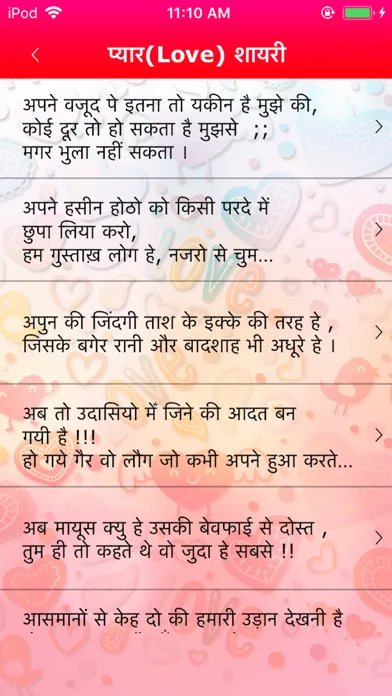 iPod 11:10 AM
प्यार(Love) शायरी
अपने वजूद पे इतना तो यकीन है मुझे की,
कोई दूर तो हो सकता है मुझसे ;;
मगर भुला नहीं सकता ।
अपने हसीन होठो को किसी परदे में
छुपा लिया करो,
हम गुस्ताख़ लोग हे, नजरो से चुम...
अपुन की जिंदगी ताश के इक्के की तरह हे ,
जिसके बगेर रानी और बादशाह भी अधूरे हे ।
अब तो उदासियो मेँ जिने की आदत बन
गयी है !!!
हो गये गैर वो लौग जो कभी अपने हुआ करते...
अब मायूस क्यु हे उसकी बेवफाई से दोस्त ,
तुम ही तो कहते थे वो जुदा हे सबसे !!
आसमानों से केह दो की हमारी उड़ान देखनी है